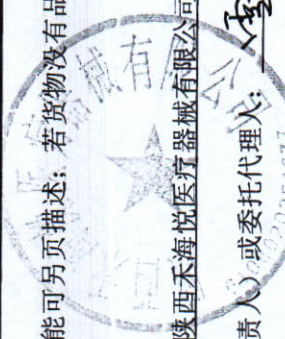 能可另页描述；若货物没有品
陕西禾海悦医疗器械有限公司
责人）或委托代理人：
械有限公司